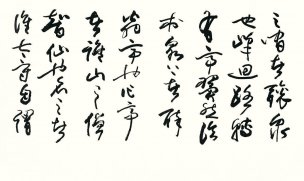 之間者釀泉
也峰迴路轉
有亭翼然臨
於泉上者醉
翁亭也作亭
者誰山之僧
智仙也名之者
誰太守自謂